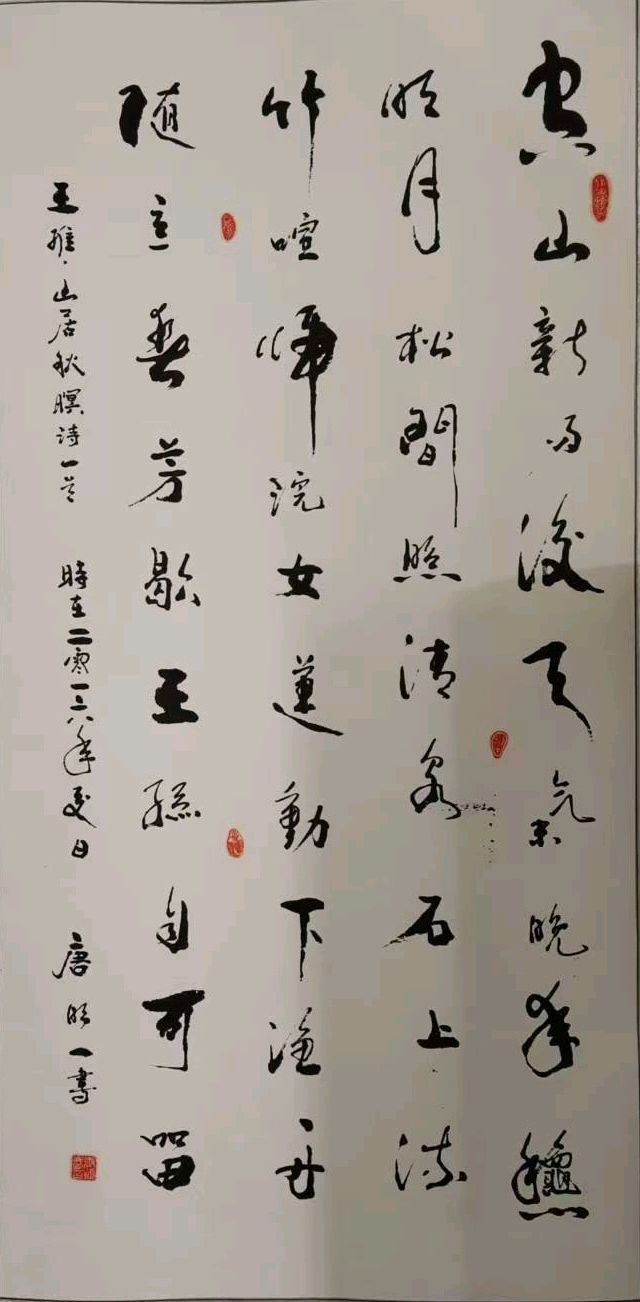 空山新雨後天氣晚来龝
明月松間照清泉石上流
竹喧歸浣女蓮動下漁舟
随意春芳歇王孫自可留
王維·山居秋暝诗一首 時在二零一六年夏日 唐明一書